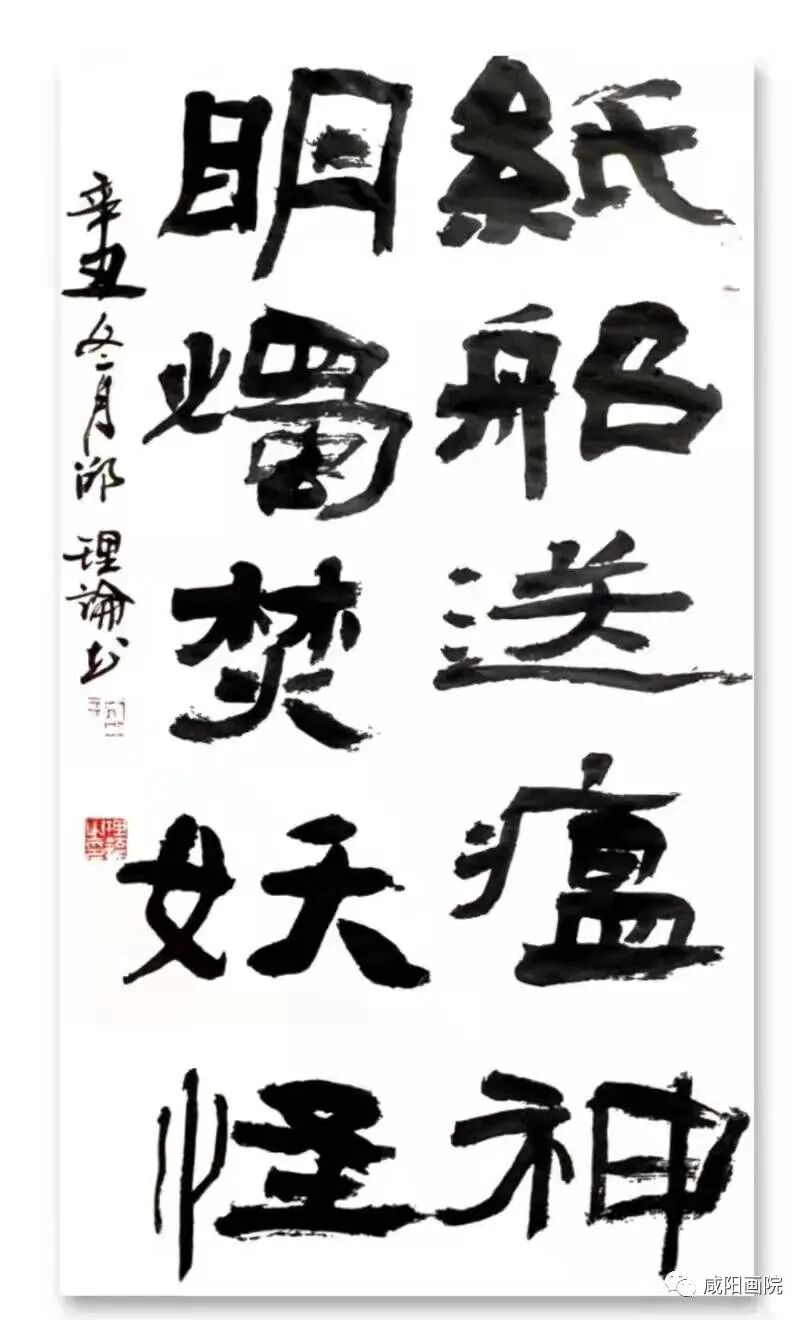 紙船送瘟神
明燭焚妖怪
辛丑冬月邵理論书
咸阳画院